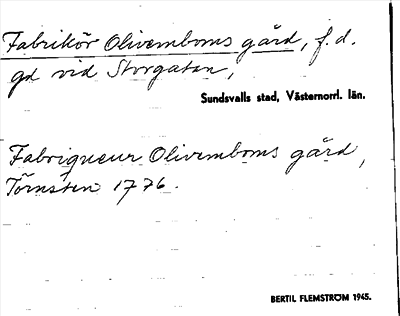 Fabrikör Olivemboms gård, f.d.
gd vid Storgatan,
Sundsvalls stad, Västernorrl. län.
Fabriqueur Olivemboms gård,
Törnsten 1776.
BERTIL FLEMSTRÖM 1945.